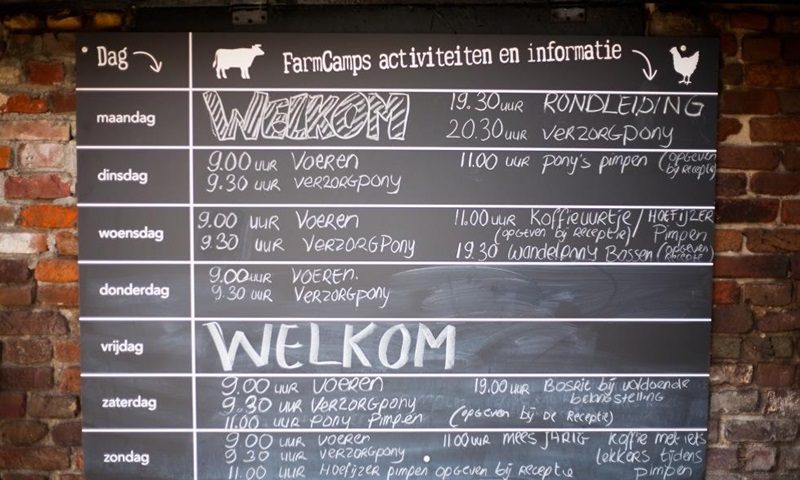 Dag
FarmCamps activiteiten en informatie
maandag
WELKOM
19.30 UUR RONDLEIDING
20.30 UUR VERZORGPONY
dinsdag
9.00 UUR VOEREN
9.30 UUR VERZORGPONY
11.00 UUR PONY'S PIMPEN (OPGEVEN
bij Receptie)
woensdag
9.00 UUR VOEREN
9.30 UUR VERZORGPONY
11.00 UUR Koffieuurtje / HOEFIJZER
(opgeven bij Receptie) Pimpen
19.30 Wandelpony Bossen (opgeven
Receptie)
donderdag
9.00 UUR VOEREN.
9.30 UUR VERZORGPONY
vrijdag
WELKOM
zaterdag
9.00 UUR VOEREN
9.30 UUR VERZORGPONY
11.00 UUR PONY PIMPEN (opgeven bij De Receptie)
19.00 UUR Bosrit bij voldoende
zondag
9.00 UUR VOEREN
9.30 UUR VERZORGPONY
11.00 UUR HOEFIJZER pimpen opgeven bij Receptie
11.00 UUR Koffie met iets
lekkers tijdens
pimpen